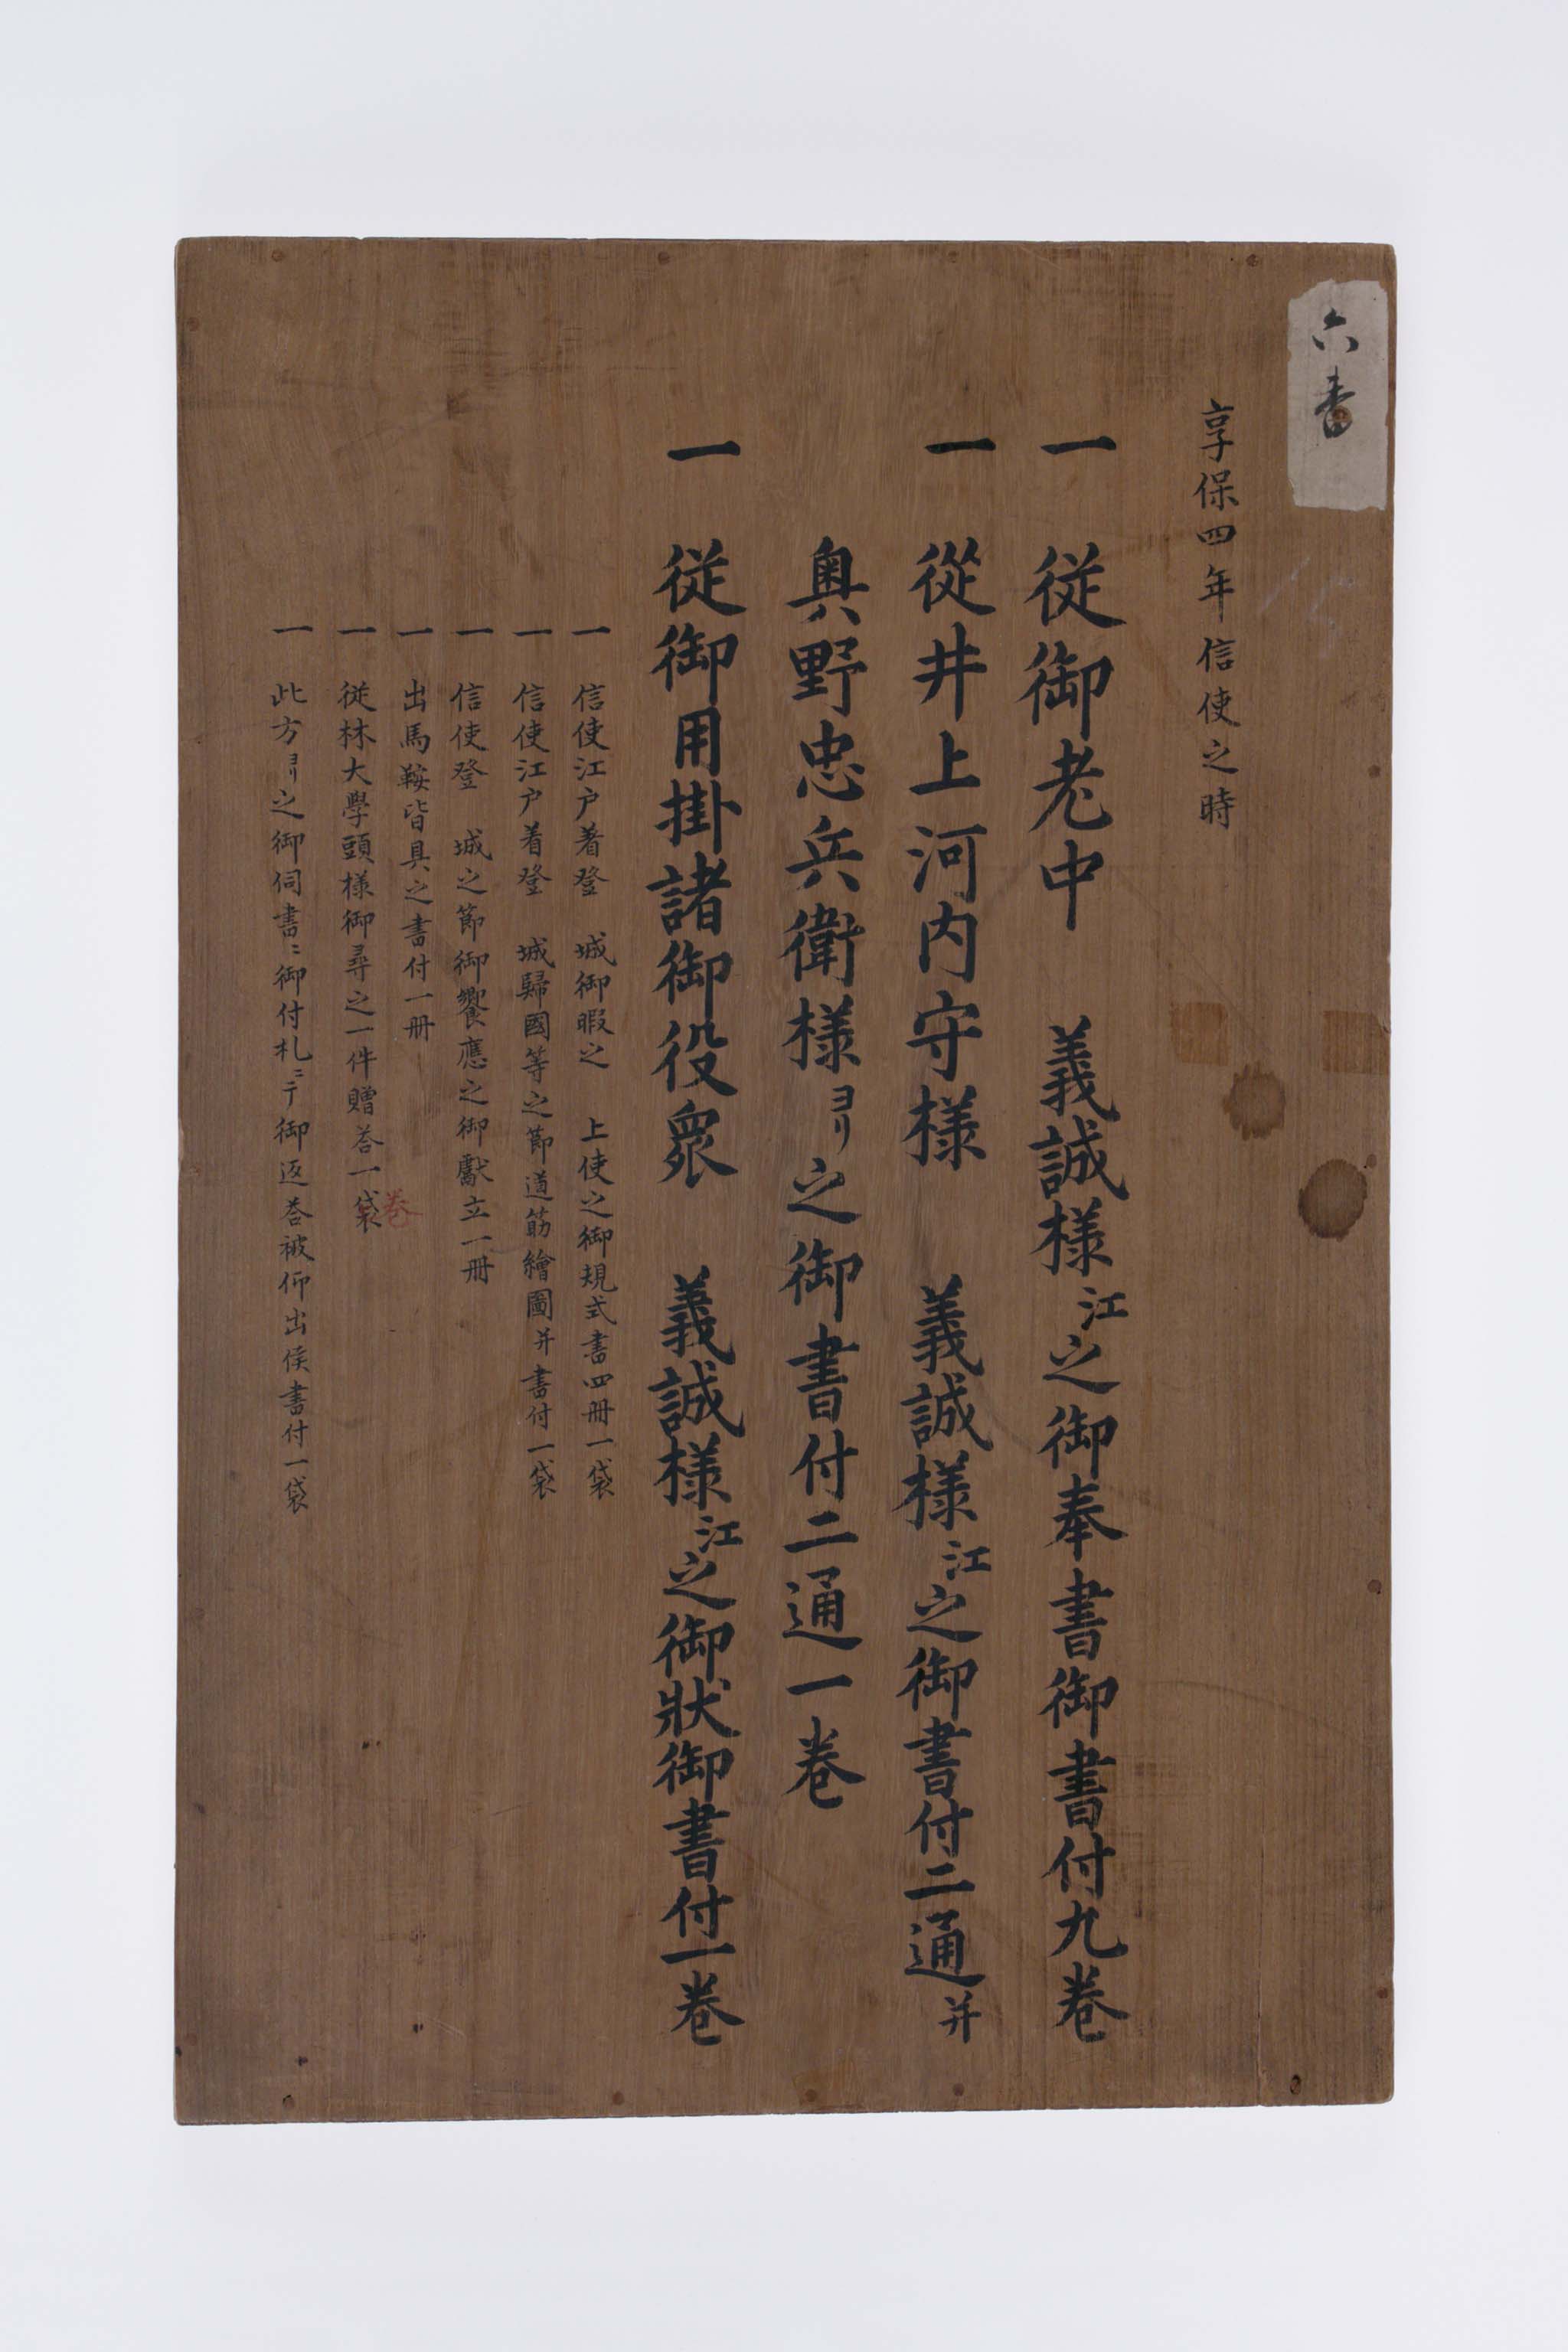 六番
享保四年信使之時
一 従御老中 義誠様江之御奉書御書付九巻
一 從井上河内守様 義誠様江之御書付二通并
奥野忠兵衛様ヨリ之御書付二通一巻
一 従御用掛諸御役衆 義誠様江之御状御書付一巻
一 信使江户着登 城御暇之 上使之御規式書四冊一袋
一 信使江户着登 城歸國等之節道筋繪圖并書付一袋
一 信使登 城之節御饗應之御獻立一冊
一 出馬鞍皆具之書付一冊
一 従林大學頭様御尋之一件贈荅一袋
巻
一 此方ヨリ之御伺書ニ御付札ニテ御返荅被仰出候書付一袋